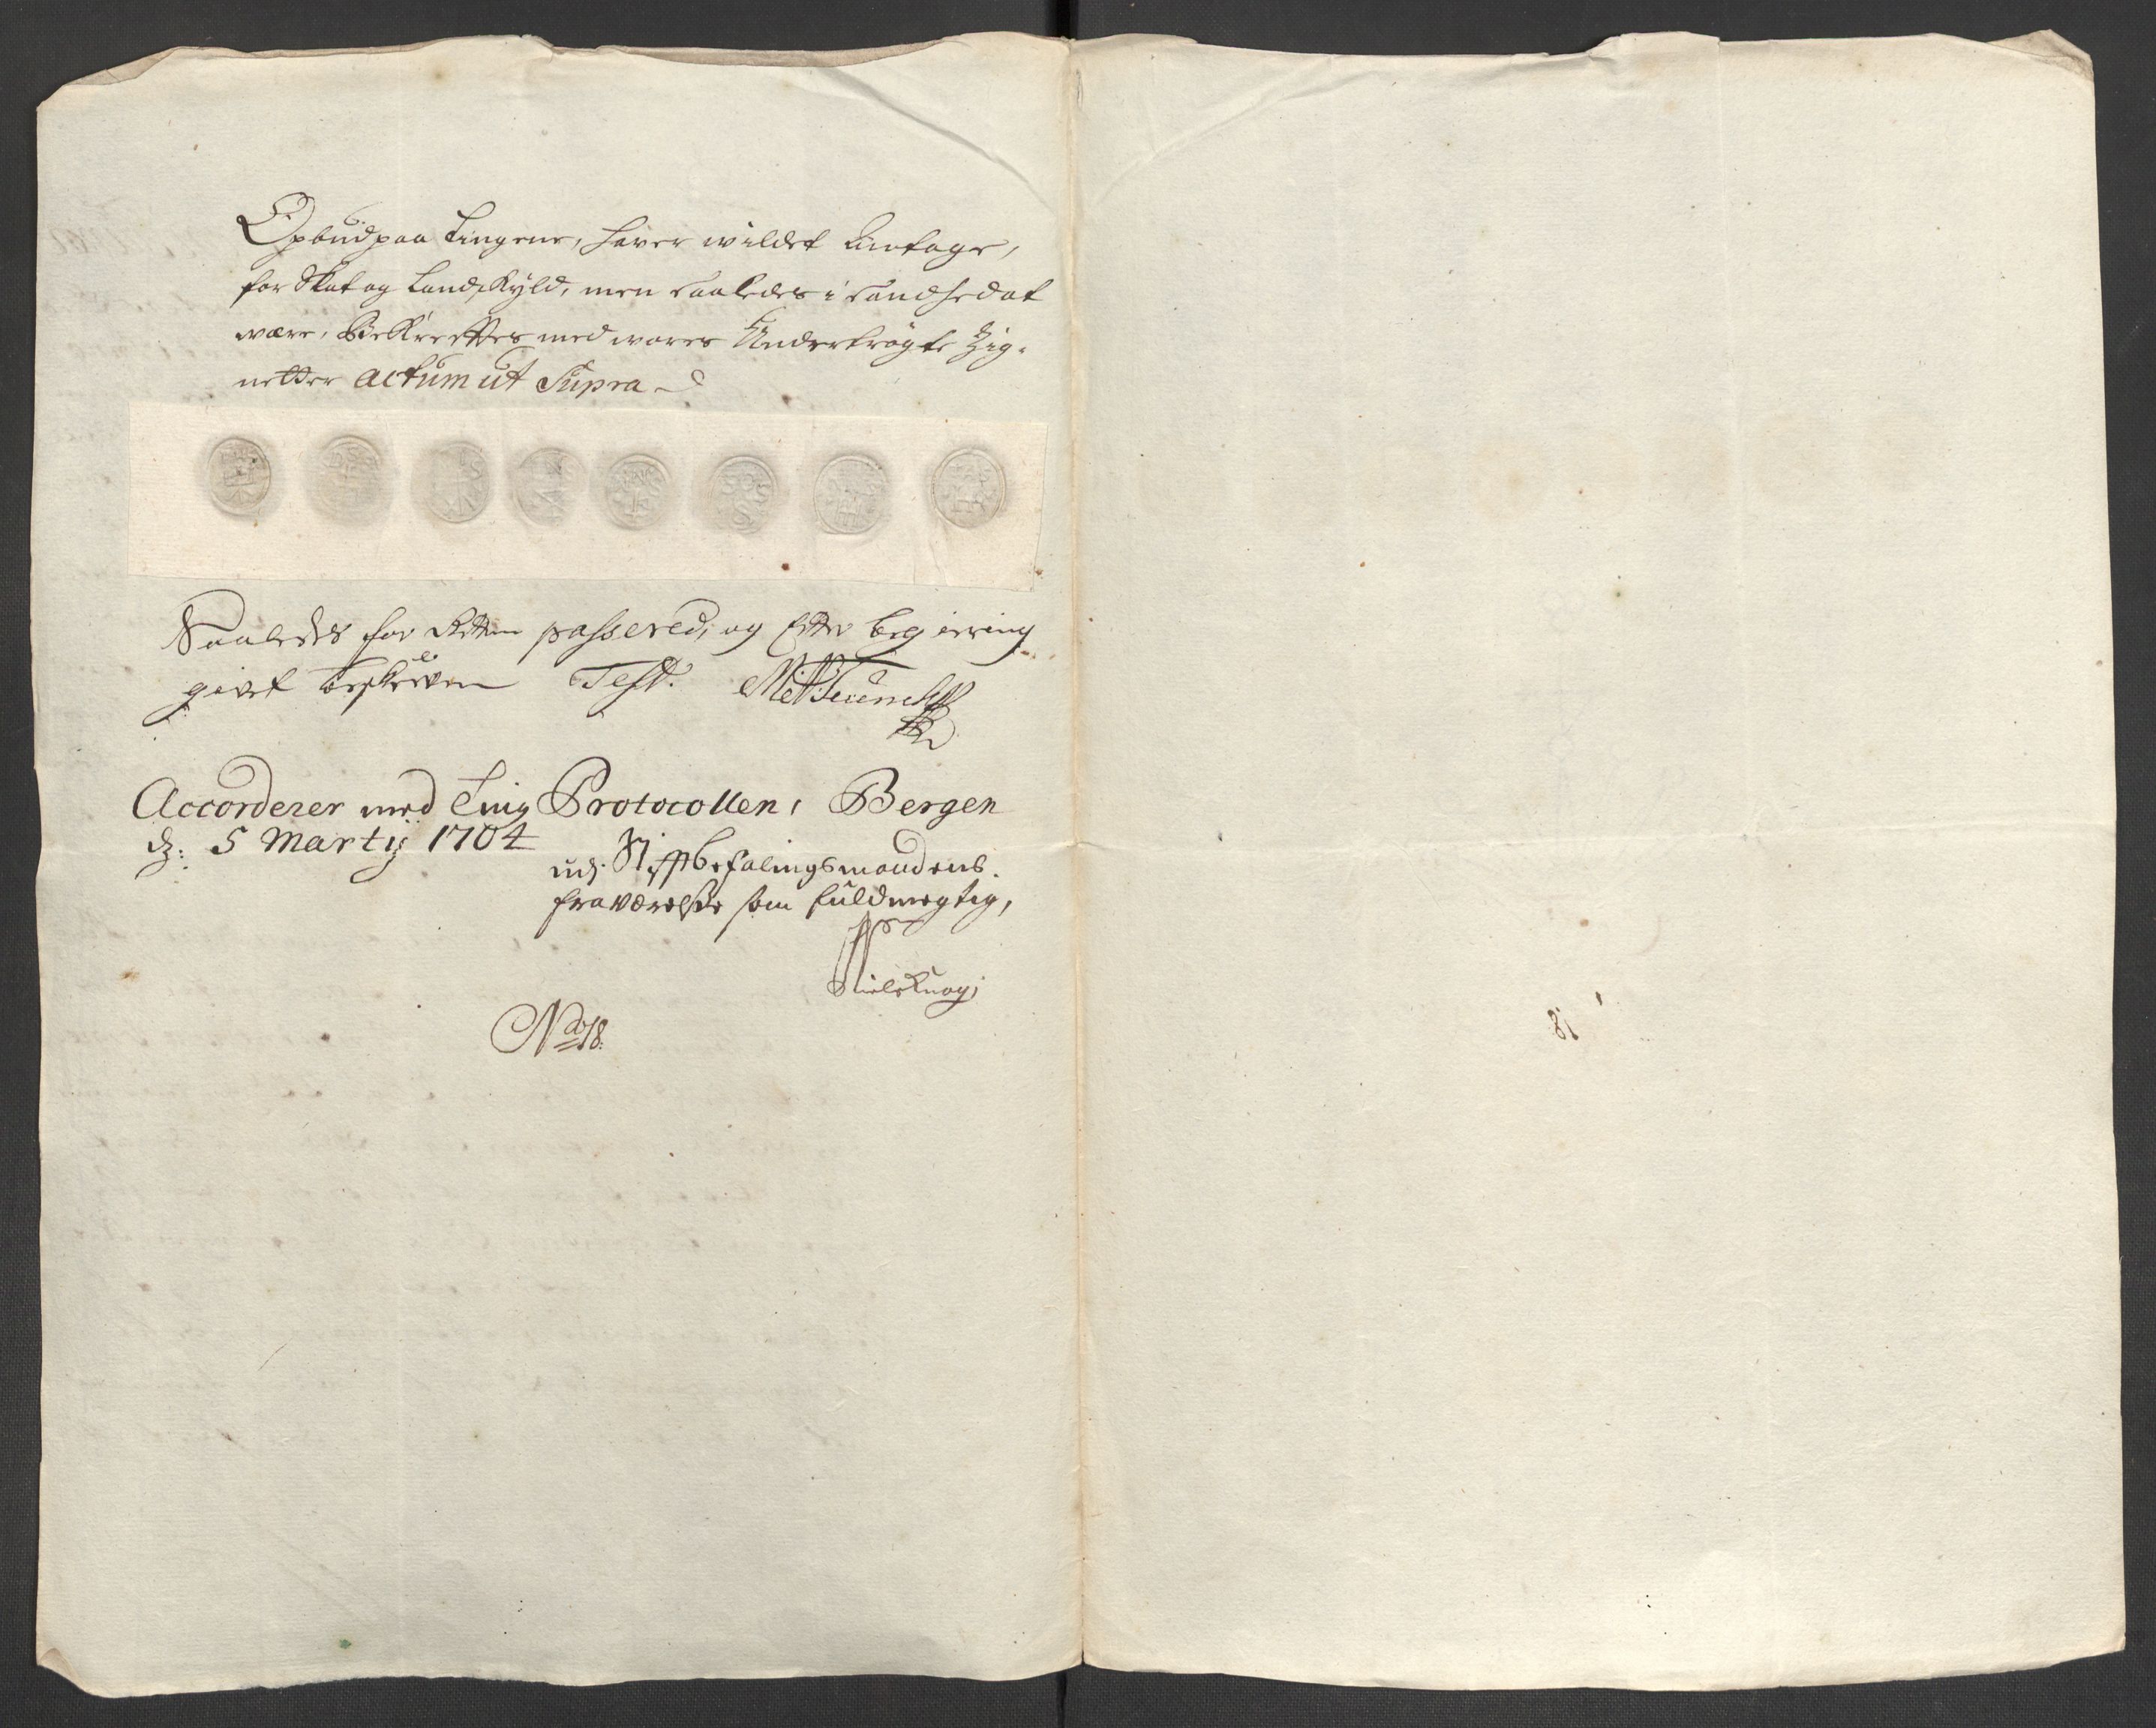 Opbud paa tingene, haver wildet Antage,
for Skat og Landskyld, men saaledes i sandhed at
were, Bekreftes med wores Undertrögte Zig-
netter Actum ut Supra
Saaledes for Retten passered, og Efter begierring
givet beskreven Test.
Accorderer med Ting Protocollen, Bergen
d: 5 Martij 1704
udj Stiftbefalingsmandens
fraværelse som fuldmegtig,
Niels Knag
No 18.
18